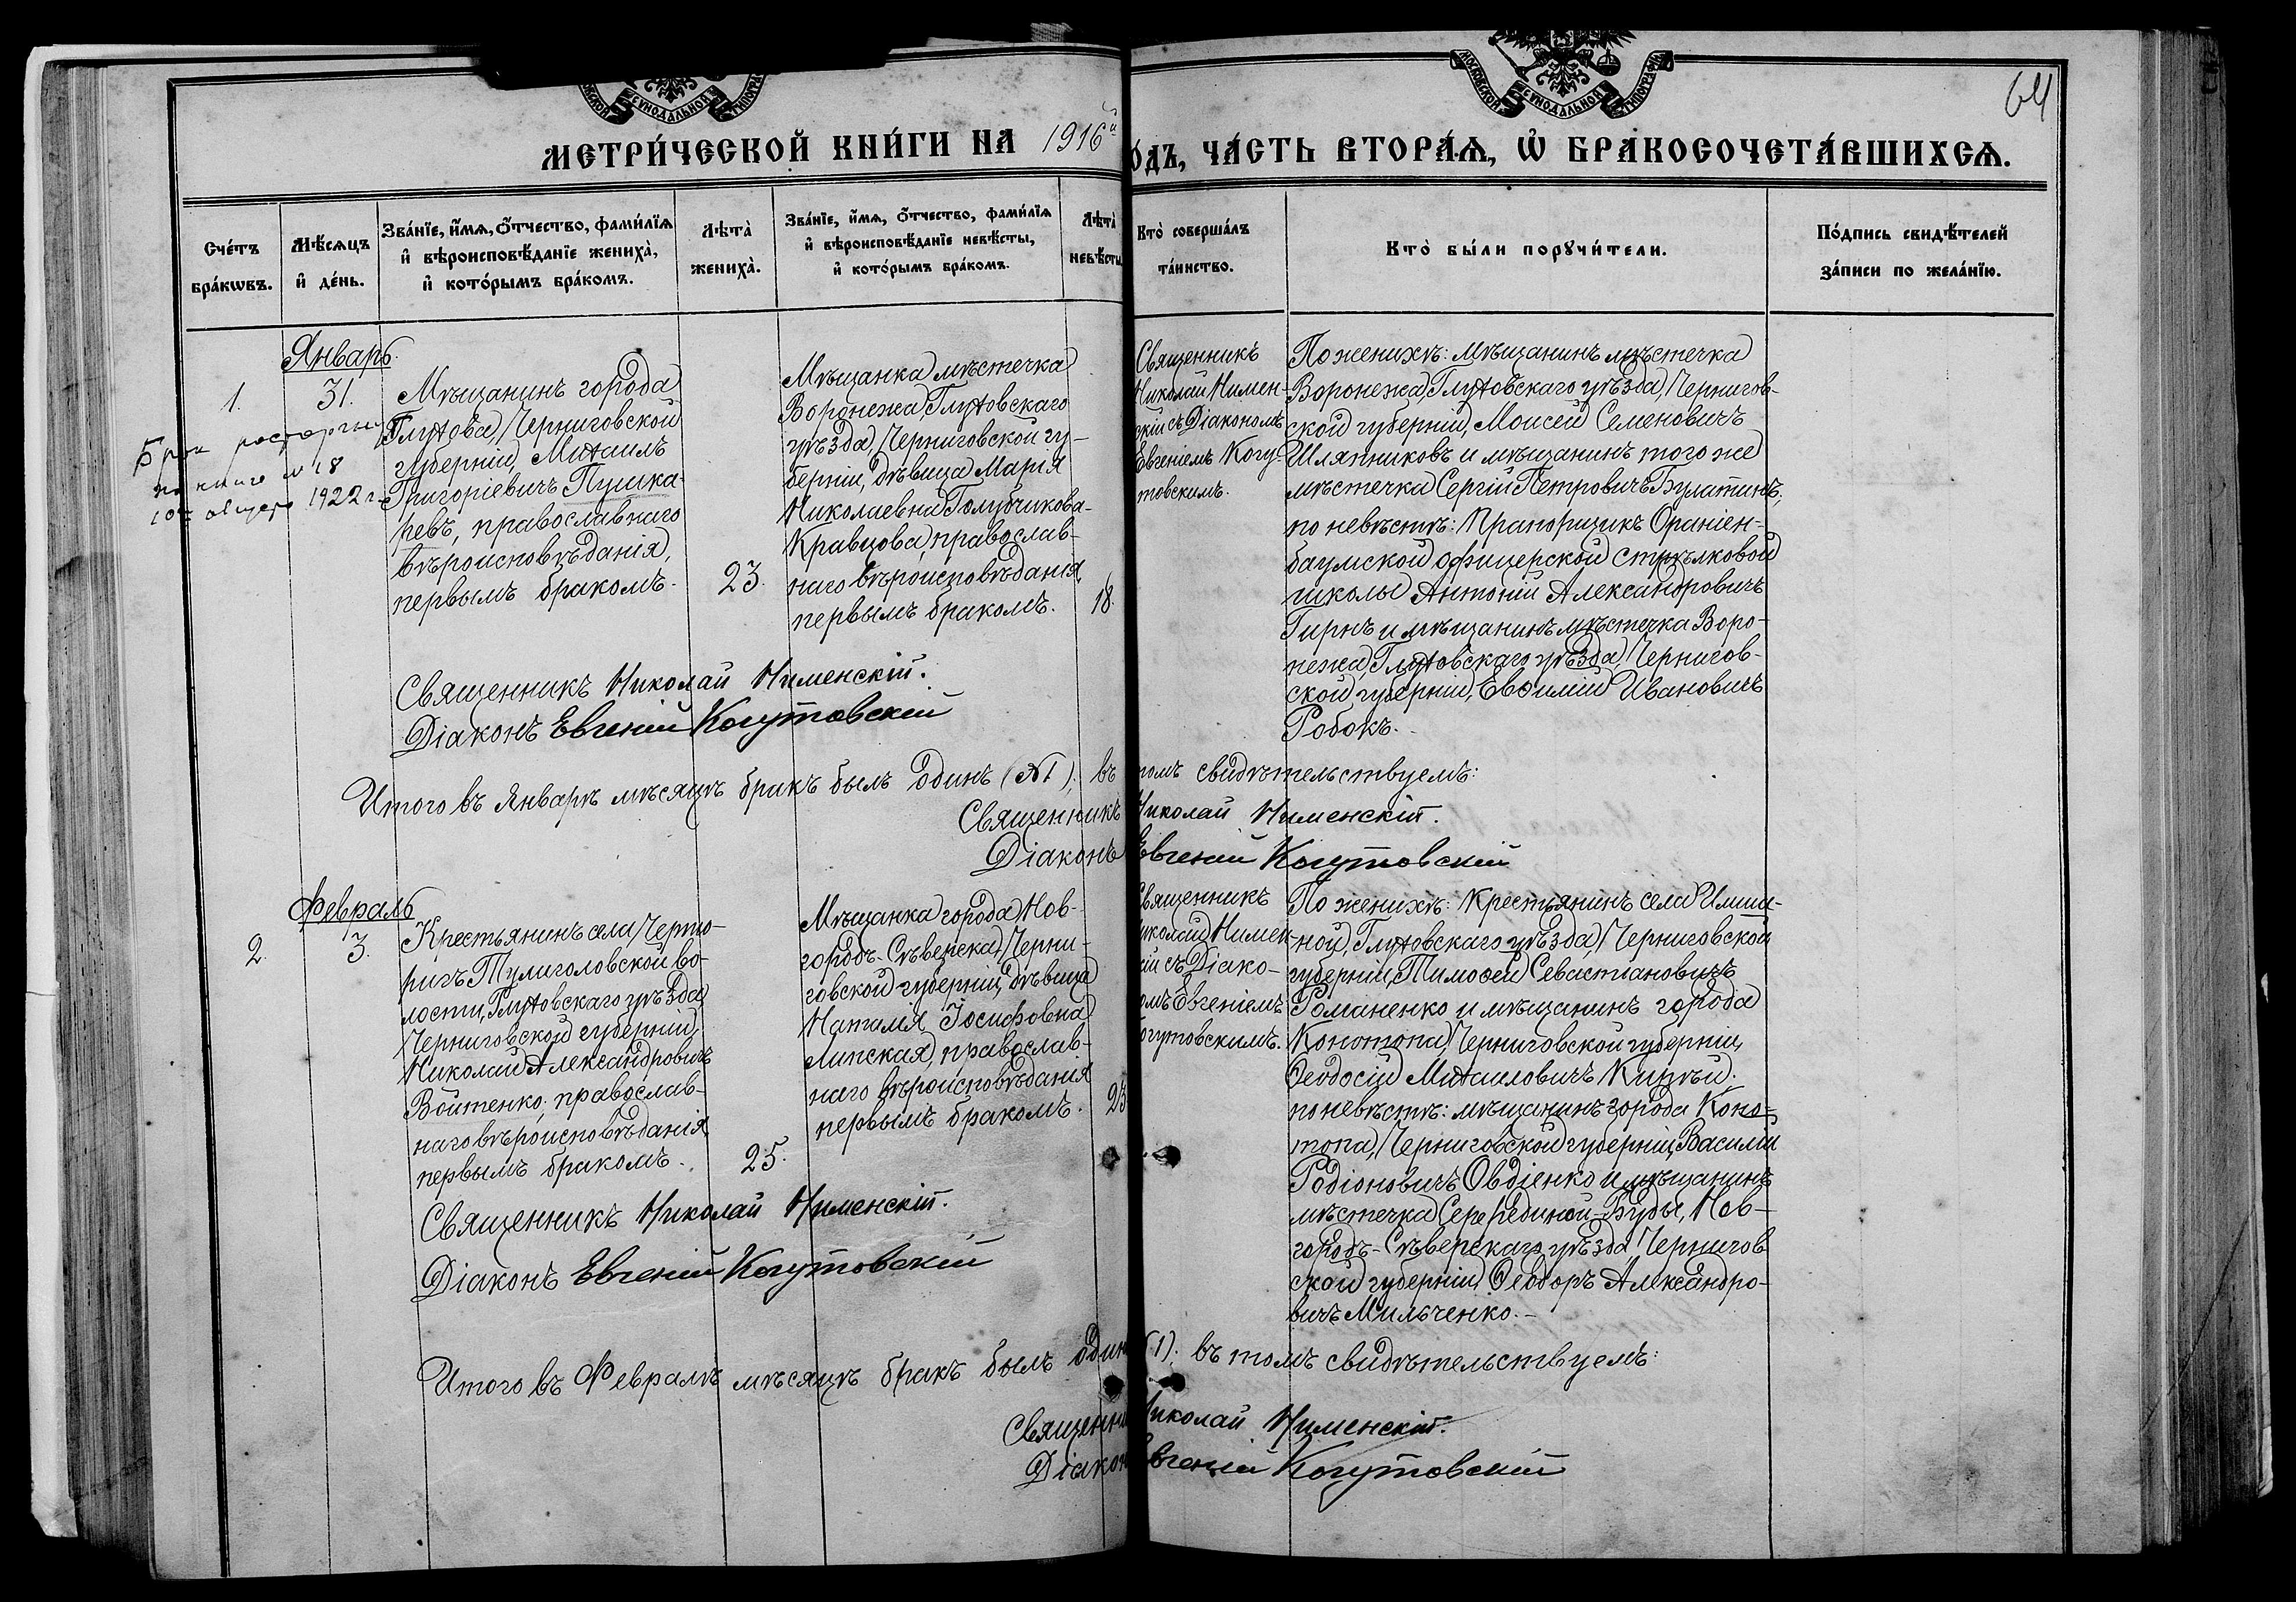 64
МОСКОВСКОЙ СѴНОДАЛЬНОЙ ТИПОГРАФІИ
МЕТРИ́ЧЕСКОЙ КНИ́ГИ НА 1916й
ОДЪ, ЧА́СТЬ ВТОРА́Ѧ, Ѡ҆ БРАКОСОЧЕТА́ВШИХСѦ.
Сче́тъ бра́кѡвъ.
Мѣ́сѧцъ и҆ де́нь.
Зва́нїе, и҆́мѧ, ѻ҆́тчество, фами́лїѧ
и҆ вѣроисповѣ́данїе жениха̀,
и҆ кото́рымъ бра́комъ.
Лѣта̀ жениха̀.
Зва́нїе, и҆́мѧ, ѻ҆́тчество, фами́лїѧ
и҆ вѣроисповѣ́данїе невѣ́сты,
и҆ кото́рымъ бра́комъ.
Лѣта̀ невѣ́сты
Кто̀ соверша́лъ та́инство.
Кто̀ бы́ли порꙋчи́тели.
По́дпись свидѣ́телей за́писи по жела́нїю.
Январь.
1.
31.
Мѣщанинъ города
Глухова, Черниговской
губерніи, Михаилъ
Григоріевичъ Пушка-
ревъ, православнаго
вѣроисповѣданія,
первымъ бракомъ.
23.
Брак расторгнут
по книге № 18
10го августа 1922 г.
Мѣщанка мѣстечка
Воронежа, Глуховскаго
уѣзда, Черниговской гу-
берніи, дѣвица Марія
Николаевна Голубчикова-
Кравцова, православ-
наго вѣроисповѣданія,
первымъ бракомъ.
18.
Священникъ
Николай Нимен-
скій съ Діакономъ
Евгеніемъ Когу-
товскимъ.
По женихѣ: мѣщанинъ мѣстечка
Воронежа, Глуховскаго уѣзда, Чернигов-
ской губерніи, Моисей Семеновичъ
Шляпниковъ и мѣщанинъ того же
мѣстечка Сергій Петровичъ Булатинъ;
по невѣстѣ: Прапорщикъ Ораніен-
баумской офицерской стрѣлковой
школы Антоній Александровичъ
Гирнъ и мѣщанинъ мѣстечка Воро-
нежа, Глуховскаго уѣзда, Чернигов-
ской губерніи, Евѳимій Ивановичъ
Робокъ.
Священникъ Николай Нименскій.
Діаконъ Евгеній Когутовскій
Итого въ Январѣ мѣсяцѣ бракъ былъ одинъ (№1); въ томъ свидѣтельствуемъ:
Священникъ Николай Нименскій.
Діаконъ Евгеній Когутовскій
Февраль
2.
3.
Крестьянинъ села Черто-
ригъ Тулиголовской во-
лости, Глуховскаго уѣзда
Черниговской губерніи,
Николай Александровичъ
Войтенко, православ-
наго вѣроисповѣданія,
первымъ бракомъ.
25.
Мѣщанка города Нов-
городъ-Сѣверска, Черни-
говской губерніи, дѣвица
Наталія Іосифовна
Липская, православ-
наго вѣроисповѣданія
первымъ бракомъ.
23
Священникъ
иколай Нимен-
кій съ Діако-
омъ Евгеніемъ
огутовскимъ.
По женихѣ: Крестьянинъ села Имши-
ной, Глуховскаго уѣзда, Черниговской
губерніи, Тимоѳей Севастіановичъ
Романенко и мѣщанинъ города
Конотопа, Черниговской губерніи,
Ѳеодосій Михаиловичъ Кирѣй;
по невѣстѣ: мѣщанинъ города Коно-
топа, Черниговской губерніи, Василій
Родіоновичъ Овдіенко и мѣщанинъ
мѣстечка Середииной-Буды, Нов-
городъ-Сѣверскаго уѣзда Чернигов
ской губерніи, Ѳеодоръ Александро-
вичъ Мильченко.
Священникъ Николай Нименскій.
Діаконъ Евгеній Когутовскій
Итого въ Февралѣ мѣсяцѣ бракъ былъ один 1); въ томъ свидѣтельствуемъ:
Священни Николай Нименскій.
Діакон Евгеній Когутовскій